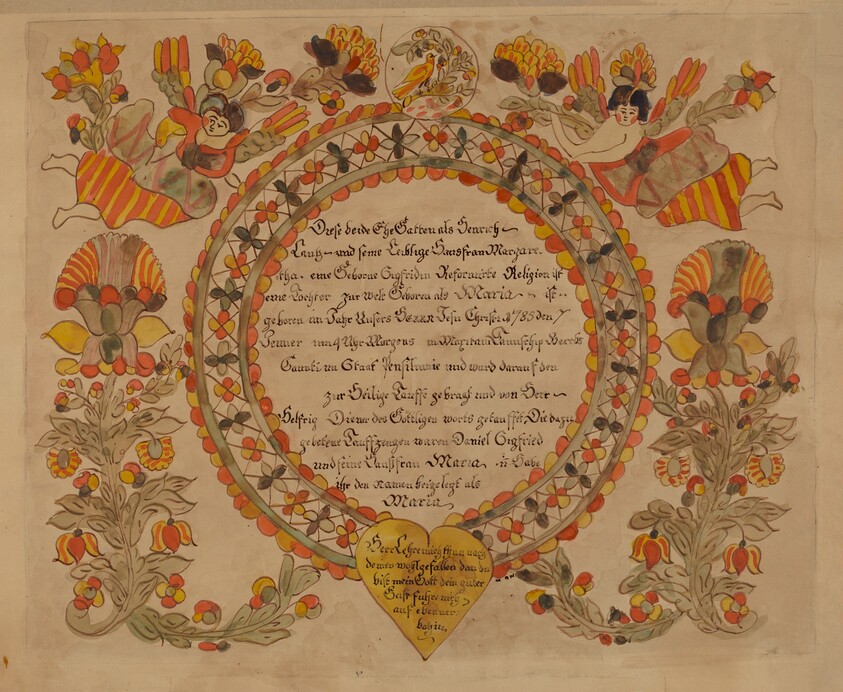 Diese beide Ehe Gatten als Henrich
Lautz und seine Eehlige Hausfrau Margare
tha eine Geborne Sigfridin Reformirte Religion ist
eine Tochter zur Welt Geboren als Maria ist
geboren im Jahr Unsers HERRN Jesu Christi A 1785 den 7
Jenner um 4 Uhr Morgens in Maxitani Taunschip Berks
Caunti im Staat Pensilvanie und ward darauf den
zur Heilige Tauffe gebragt und von Herr
Helfrig Diener des Göttligen worts getauffet Die dazu
gebetene Tauffzeugen waren Daniel Sigfried
und seine Haußfrau Maria u Habe
ihr den namen beigelegt als
Maria
Herr Lehre mich thun nach
deinem wohlgefallen dan du
bist mein Gott dein guder
Geist fuhre mich
auf ebener
bahn